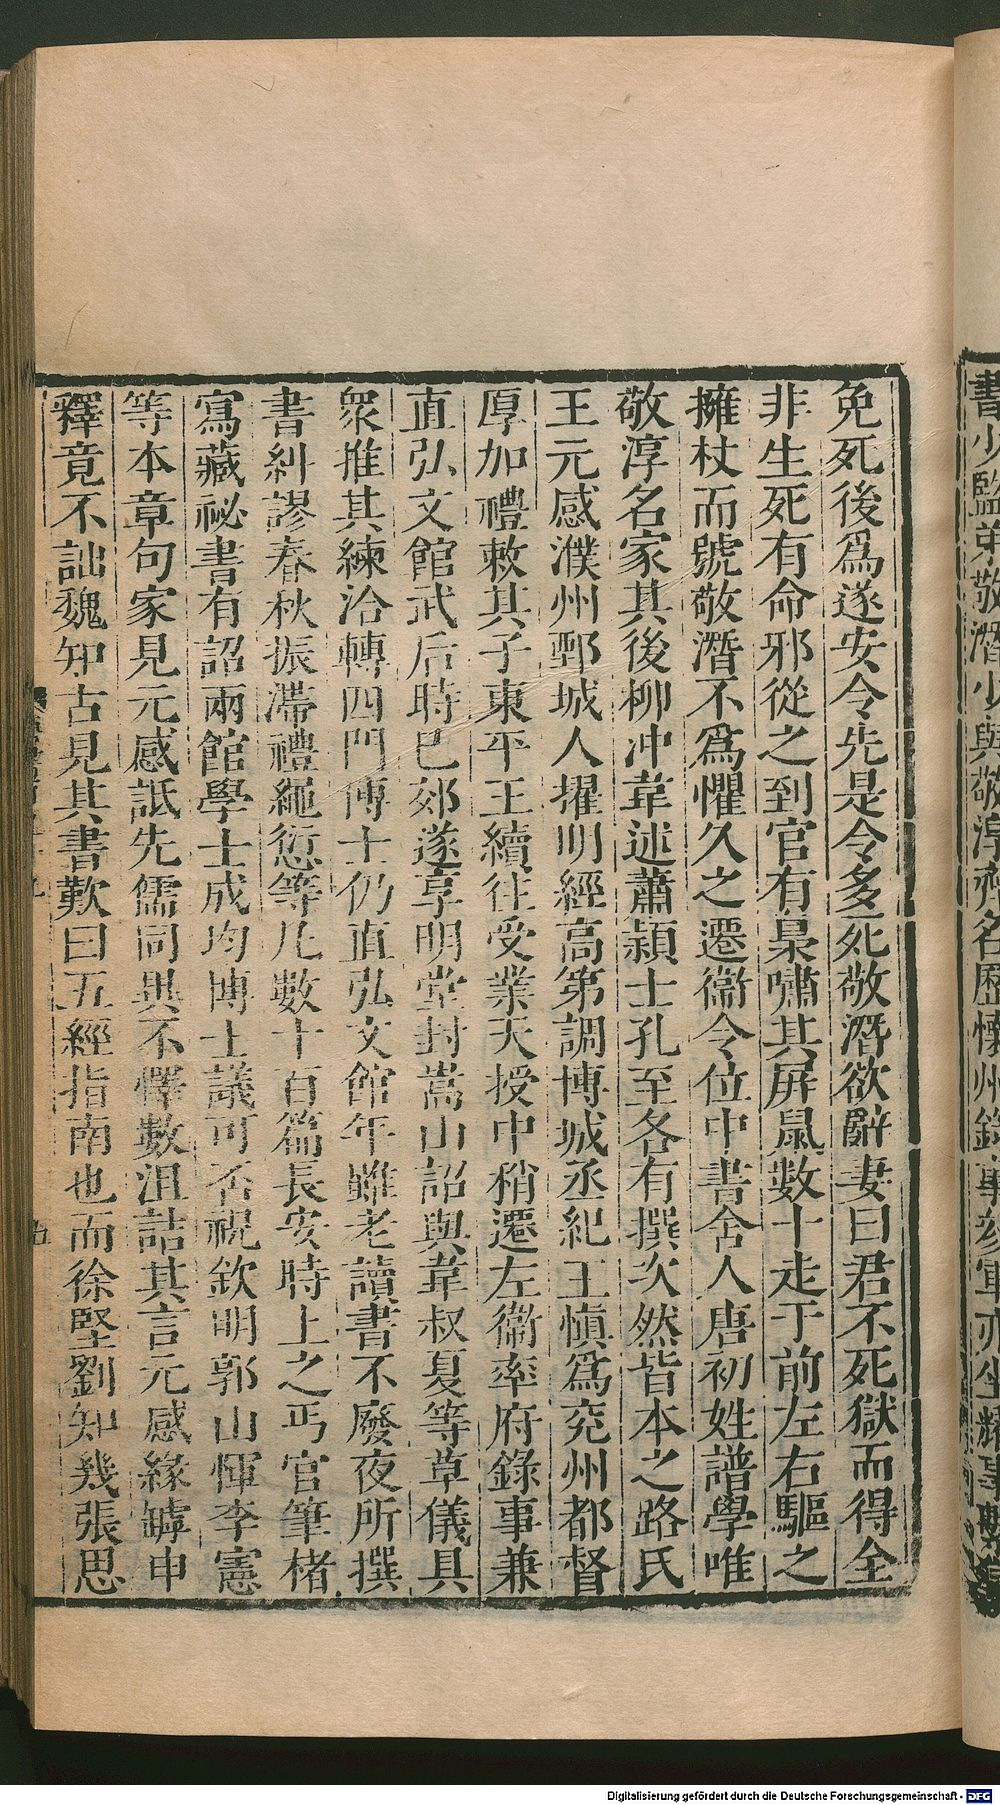 書少監弟敬潛少與敬淳齊名歷懷州錄事參軍亦坐耀事繫
免死後爲遂安令先是令多死敬潛欲辭妻曰君不死獄而得全
非生死有命邪從之到官有梟嘯其屏鼠數十走于前左右驅之
擁杖而號敬潛不爲懼久之遷衞令位中書舍人唐初姓譜學唯
敬淳名家其後柳冲韋述蕭頴士孔至各有撰次然皆本之路氏
王元感濮州鄄城人擢明經高第調博城丞紀王慎爲兖州都督
厚加禮敕其子東平王續往受業天授中稍遷左衞率府錄事兼
直弘文館武后時巳郊遂享明堂封嵩山詔與韋叔夏等草儀具
衆推其練洽轉四門博士仍直弘文館年雖老讀書不廢夜所撰
書糾謬春秋振滯禮繩愆等凡數十百篇長安時上之丐官筆楮
寫藏祕書有詔兩館學士成均博士議可否祝欽明郭山惲李憲
等本章句家見元感詆先儒同異不懌數沮詰其言元感緣罅申
釋竟不詘魏知古見其書歎曰五經指南也而徐堅劉知幾張思
Digitalisierung gefördert durch die Deutsche Forschungsgemeinschaft - DFG